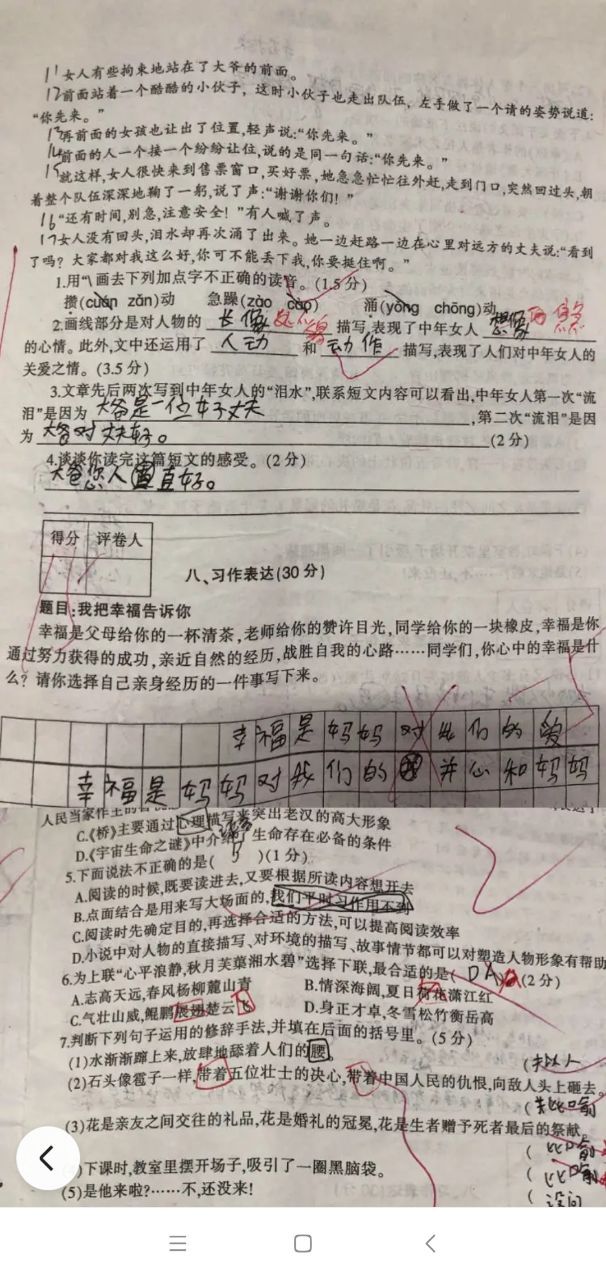 11女人有些拘束地站在了大爷的前面。
12前面站着一个酷酷的小伙子，这时小伙子也走出队伍，左手做了一个请的姿势说道：
“你先来。”
13再前面的女孩也让出了位置，轻声说：“你先来。”
14前面的人一个接一个纷纷让位，说的是同一句话：“你先来。”
15就这样，女人很快来到售票窗口，买好票，她急急忙忙往外赶，走到门口，突然回过头，朝
着整个队伍深深地鞠了一躬，说了声：“谢谢你们！”
16“还有时间，别急，注意安全！”有人喊了声。
17女人没有回头，泪水却再次涌了出来。她一边赶路一边在心里对远方的丈夫说：“看到
了吗？大家都对我这么好，你可不能丢下我，你要挺住啊。”
1.用“\”画去下列加点字不正确的读音。(1.5分)
攒(cuán zǎn)动 急躁(zào cào) 涌(yǒng chōng)动
2.画线部分是对人物的 描写，表现了中年女人
的心情。此外，文中还运用了 人动 和 动作 描写，表现了人们对中年女人的
关爱之情。(3.5分)
3.文章先后两次写到中年女人的“泪水”，联系短文内容可以看出，中年女人第一次“流
泪”是因为 大爷是一位好丈夫 ，第二次“流泪”是因
为 大爷对丈夫好。 (2分)
4.谈谈你读完这篇短文的感受。(2分)
得分 评卷人
八、习作表达(30分)
题目：我把幸福告诉你
幸福是父母给你的一杯清茶，老师给你的赞许目光，同学给你的一块橡皮，幸福是你
通过努力获得的成功，亲近自然的经历，战胜自我的心路……同学们，你心中的幸福是什
么？请你选择自己亲身经历的一件事写下来。
幸福是妈妈对 们的爱
幸福是妈妈对我们的 并心和妈妈
C.《桥》主要通过心理描写来突出老汉的高大形象
D.《宇宙生命之谜》中介绍了生命存在必备的条件
5.下面说法不正确的是( )(1分)
A.阅读的时候，既要读进去，又要根据所读内容想开去
B.点面结合是用来写大场面的，我们平时习作用不到
C.阅读时先确定目的，再选择合适的方法，可以提高阅读效率
D.小说中对人物的直接描写、对环境的描写、故事情节都可以对塑造人物形象有帮助
6.为上联“心平浪静，秋月芙蕖湘水碧”选择下联，最合适的是( DA )(2分)
A.志高天远，春风杨柳麓山青 B.情深海阔，夏日荷花潇江红
C.气壮山威，鲲鹏展翅楚云飞 D.身正才卓，冬雪松竹衡岳高
7.判断下列句子运用的修辞手法，并填在后面的括号里。(5分)
(1)水渐渐蹿上来，放肆地舔着人们的腰。
(2)石头像雹子一样，带着五位壮士的决心，带着中国人民的仇恨，向敌人头上砸去。
(3)花是亲友之间交往的礼品，花是婚礼的冠冕，花是生者赠予死者最后的祭献。
( 比喻
)下课时，教室里摆开场子，吸引了一圈黑脑袋。
( 比喻
(5)是他来啦？……不，还没来！
( 设问